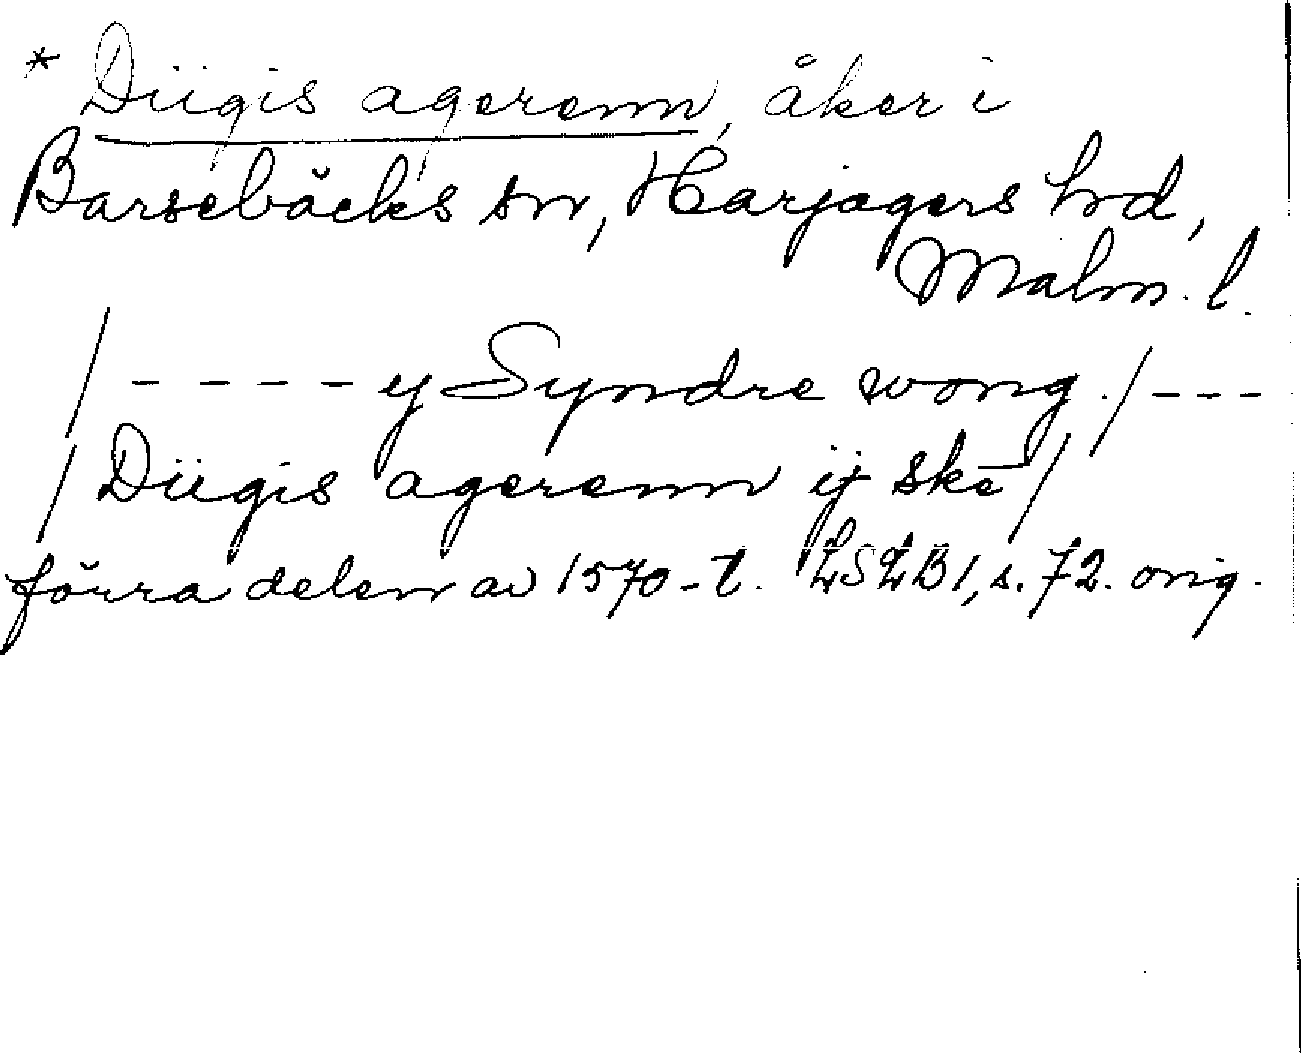 * Dügis agerenn, åker i
Barsebäcks sn, Harjagers hd,
Malm. l.
/ - - - - y Syndre wong / - - -
/ Dügis agerenn ij ske /
förra delen av 1570-t. LSLB1, s. 72. orig.